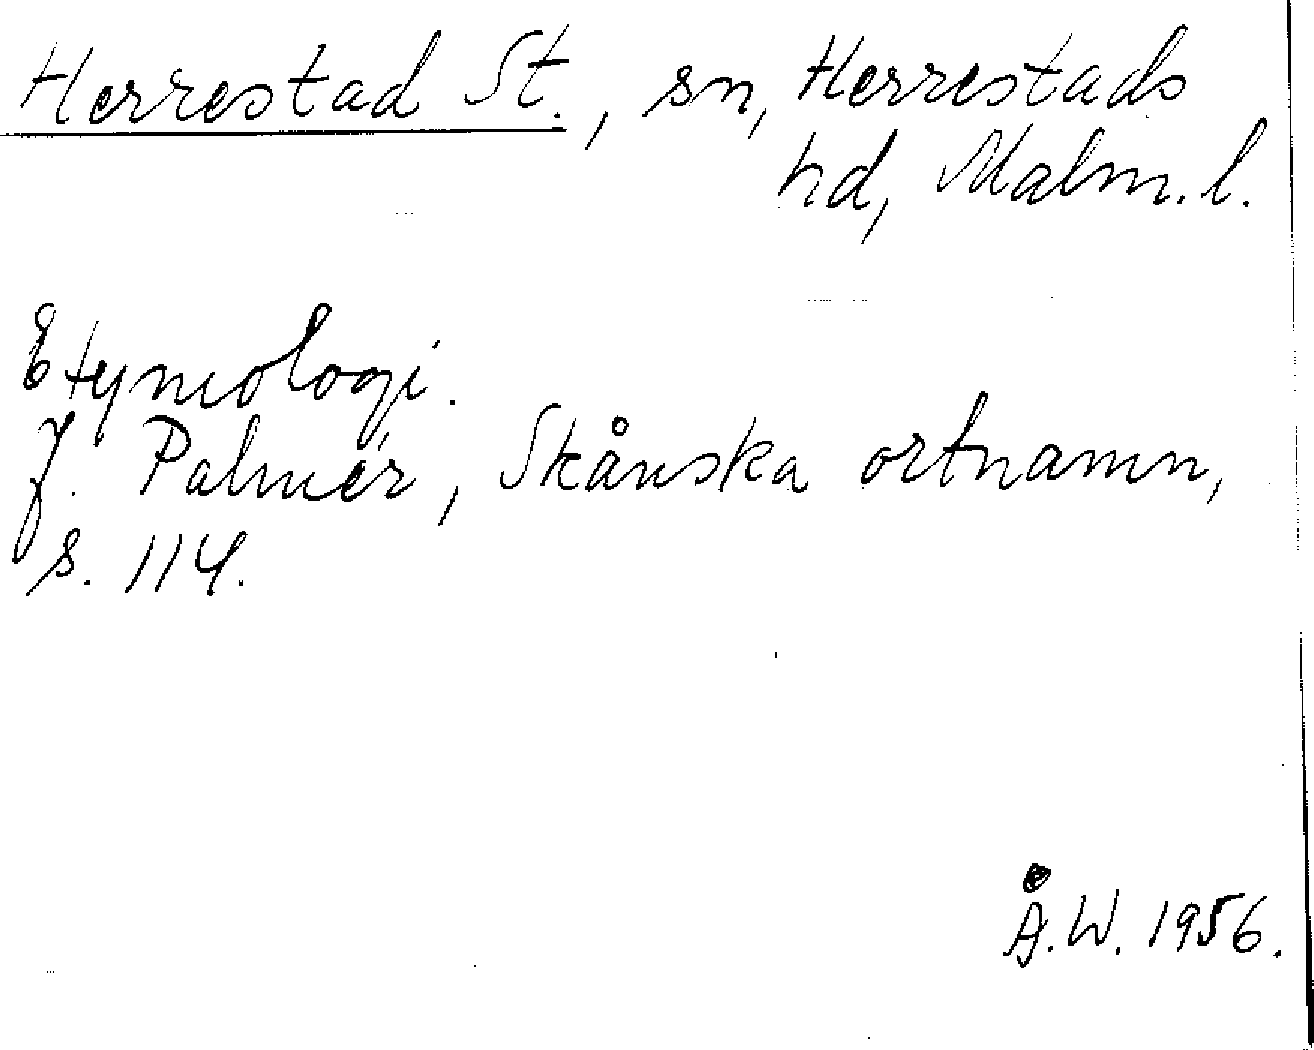 Herrestad St., sn, Herrestads
hd, Malm. l.
Etymologi.
J. Palmér, Skånska ortnamn,
s. 114.
Å.W. 1956.